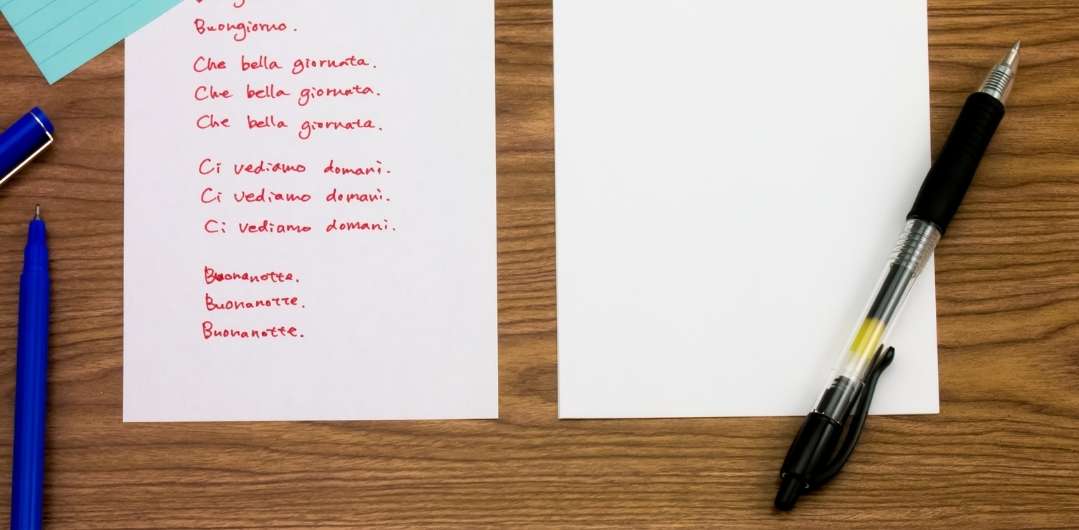 Buongiorno.
Che bella giornata.
Che bella giornata.
Che bella giornata.
Ci vediamo domani.
Ci vediamo domani.
Ci vediamo domani.
Buonanotte.
Buonanotte.
Buonanotte.